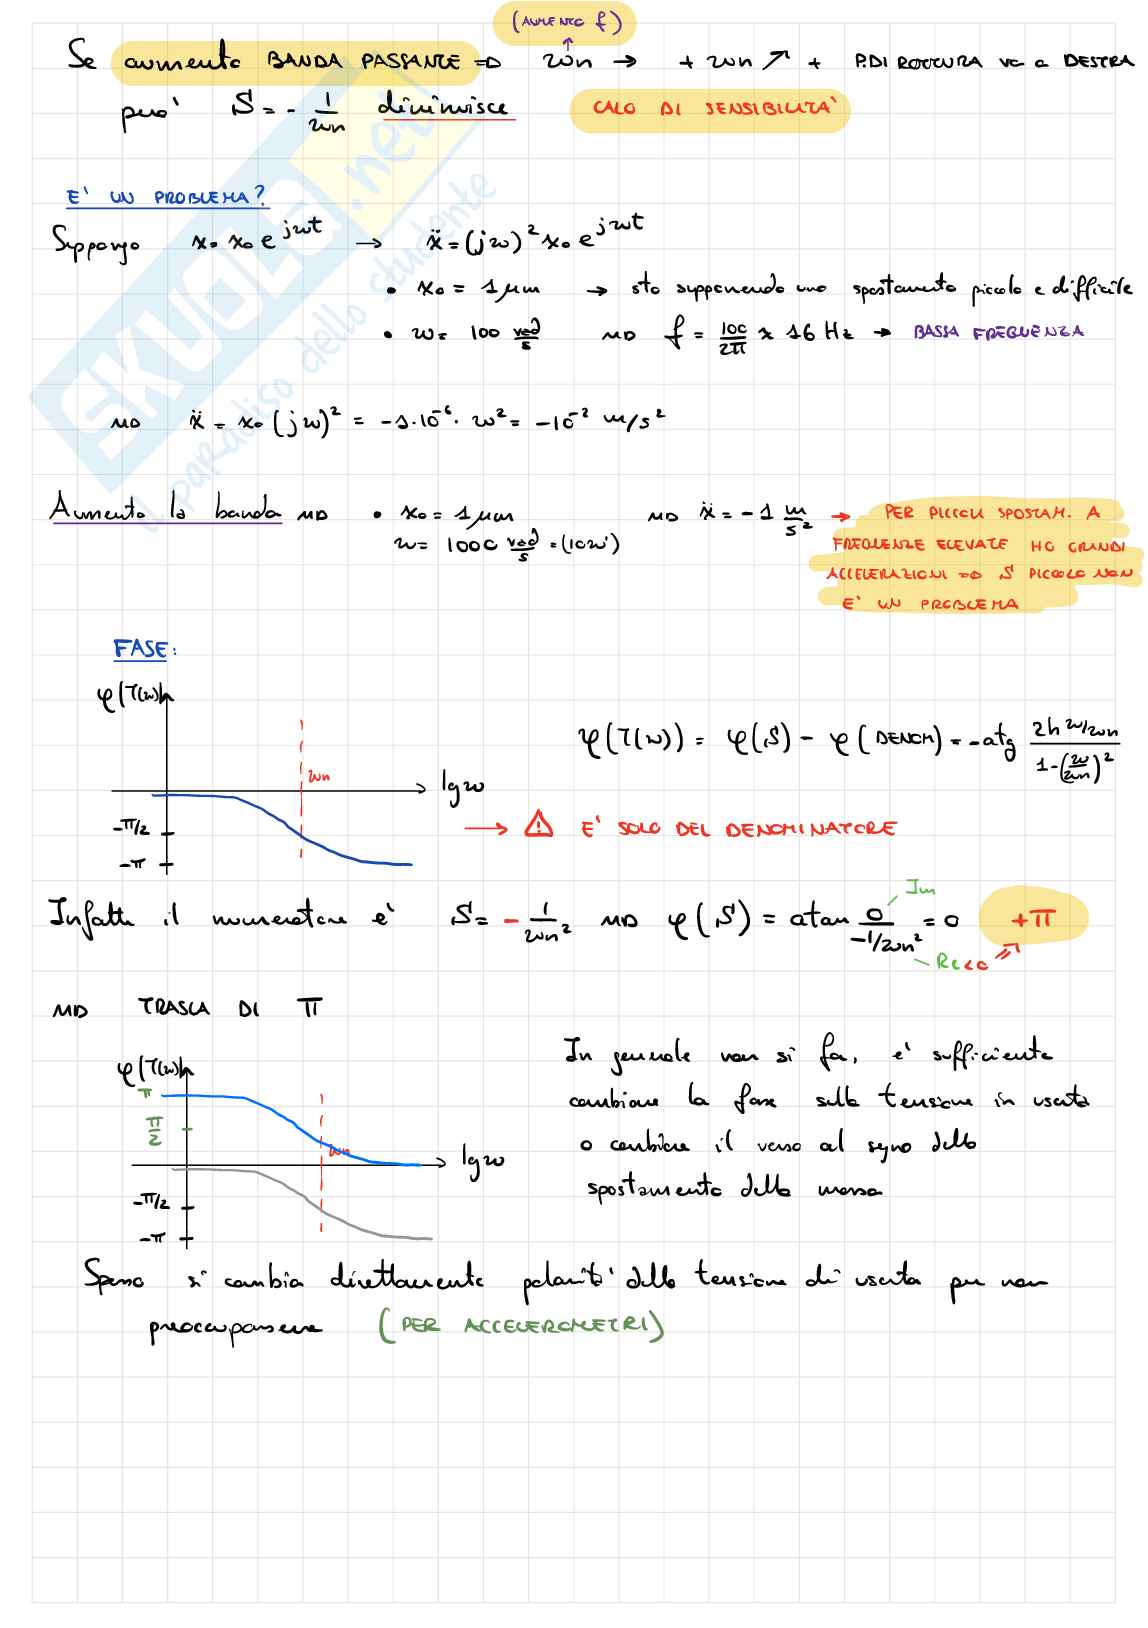 (AUMENTO f)
Se aumento BANDA PASSANTE => ωn → + ωn ↗ + P.DI ROTTURA va a DESTRA
però S = - 1/ωn diminuisce CALO DI SENSIBILITA'
E' UN PROBLEMA?
Suppongo x = x₀ e^jωt → ẍ = (jω)² x₀ e^jωt
• x₀ = 1 μm → sto supponendo uno spostamento piccolo e difficile
• ω = 100 rad/s ⇒ f = 100/2π ≈ 16 Hz → BASSA FREQUENZA
⇒ ẍ = x₀ (jω)² = -1·10⁻⁶ · ω² = -10⁻² m/s²
Aumento la banda ⇒ • x₀ = 1 μm ⇒ ẍ = -1 m/s² → PER PICCOLI SPOSTAM. A
ω = 1000 rad/s = (10ω') FREQUENZE ELEVATE HO GRANDI
ACCELERAZIONI => S PICCOLO NON
E' UN PROBLEMA
FASE:
φ(T(ω))
φ(T(ω)) = φ(S) - φ(DENOM) = -atg (2h ω/ωn)/(1-(ω/ωn)²)
ωn
lg ω
-π/2
-π
→ ⚠ E' SOLO DEL DENOMINATORE
Infatti il numeratore è S = - 1/ωn² ⇒ φ(S) = atan 0/(-1/ωn²) = 0 +π
Im
Re<0
⇒ TRASLA DI π
φ(T(ω))
π
π/2
ωn
lg ω
-π/2
-π
In generale non si fa, è sufficiente
cambiare la fase sulla tensione in uscita
o cambiare il verso al segno dello
spostamento della massa
Spesso si cambia direttamente polarità della tensione di uscita per non
preoccuparsene (PER ACCELEROMETRI)
SKUOLA.net
il paradiso dello studente